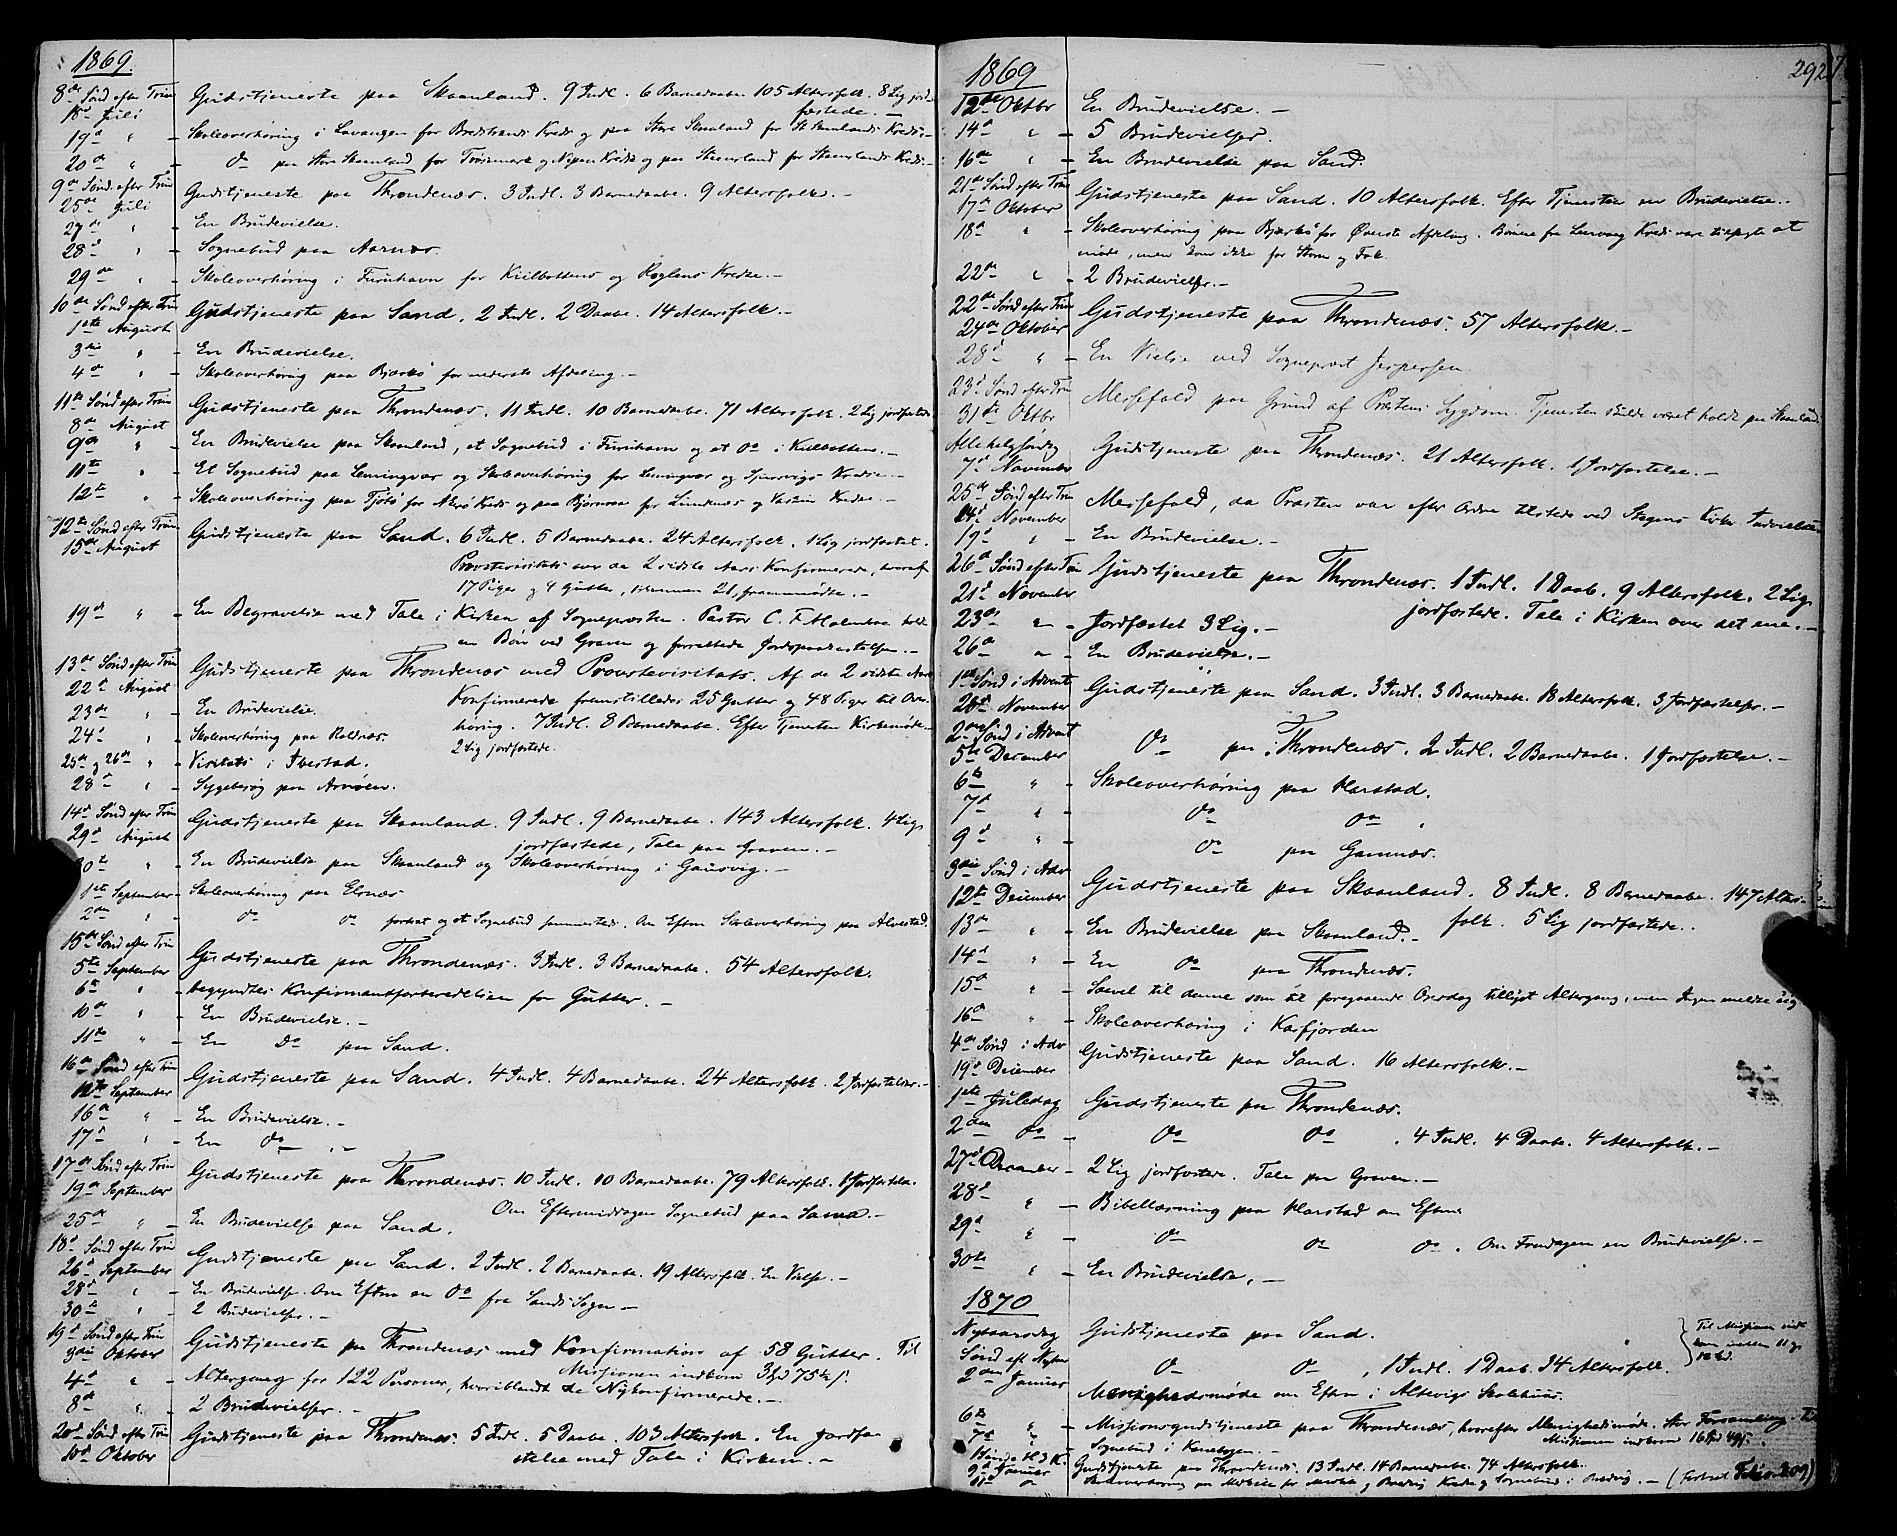 1869.
8de Sønd efter Trin Gudstjeneste paa Skaanland. 9 Indl. 6 Barnedaabe. 105 Altersfolk. 8 Lig jord-
18de Juli fæstede. -
19d " - Skoleoverhøring i Lavangen for Kreds og paa Store Skaanland for St Skanlands Kreds.-
20de " - Do paa Store Skaanland for og Nipen Kredse og paa Steensland for Steenslands Kreds.-
9de Sønd. efter Trin Gudstjeneste paa Throndenæs. 3 Indl. 3 Barnedaabe. 9 Altersfolk. -
25de Juli
27de " - En Brudevielse.
28d " - Sognebud paa Aarnæs.
29de " - Skoleoverhøring i Furuhavn for Kiilbottens og Kredse.-
10de Sønd efter Trin Gudstjeneste paa Sand. 2 Indl. 2 Daabe. 14 Altersfolk.-
1ste August
3die " - En Brudevielse.
4de " - Skoleoverhøring paa Bjarkø for nederste Afdeling.-
11te Sønd efter Trin Gudstjeneste paa Throndenæs. 11 Indl. 10 Barnedaabe. 71 Altersfolk. 2 Lig jordfæstede
8de August
9de " - En Brudevielse paa Skaanland, et Sognebud i Furuhavn og et Do i Kiilbotten.-
11te " - Et Sognebud paa Lemingvær og Skoleoverhøring for Lemingvær og Kredse.-
12te " - Skoleoverhøring paa Tjøtø for Kreds og paa Bjørnraa for Lundenæs og Kredse.-
12te Sønd efter Trin Gudstjeneste paa Sand. 6 Indl. 5 Barnedaabe. 24 Altersfolk. 1 Lig jordfæstet.
15de August Provstevisitats over de 2 sidste Aars Konfirmerede, hvoraf
17 Piger og 4 Gutter, tilsammen 21, fremmødte.-
19de " - En Begravelse med Tale i Kirken af Sognepresten. Pastor C. F. holdt
en Bøn ved Graven og forrettede Jordspaakastelsen.-
13de Sønd efter Trin Gudstjeneste paa Throndenæs med Provstevisitats. Af de 2 sidste Aars
22de August Konfirmerede fremstilledes 25 Gutter og 48 Piger til Over-
23de " - En Brudevielse. høring. 7 Indl. 8 Barnedaabe. Efter Tjenesten Kirkemøde.-
24d " - Skoleoverhøring paa Roldnæs. 2 Lig jordfæstede.
25de og 26de " - Visitats i Ibestad.
28d " - Sygebesøg paa Arnøen.
14d Sønd efter Trin Gudstjeneste paa Skaanland. 9 Indl. 9 Barnedaabe. 143 Altersfolk. 4 Lig
29d August jordfæstede, Tale paa Graven.-
30te " - En Brudevielse paa Skaanland og Skoleoverhøring i Gausvig.-
1ste September - Skoleoverhøring paa Elsnæs
2den " - Do Do fortsat og et Sognebud sammesteds. Om Eftm Skoleoverhøring paa Alvestad.
15de Sønd efter Trin Gudstjeneste paa Throndenæs. 3 Indl. 3 Barnedaabe. 54 Altersfolk.
5te September
6te " - begyndtes Konfirmantforberedelsen for Gutter.-
10de " - En Brudevielse.-
11te " - En Do paa Sand.
16de Sønd efter Trin Gudstjeneste paa Sand. 4 Indl. 4 Barnedaabe. 24 Altersfolk. 2 Jordfæstelser.-
12te September
16de " - En Brudevielse.-
17d " - En Do -
17de Sønd efter Trin Gudstjeneste paa Throndenæs. 10 Indl. 10 Barnedaabe. 79 Altersfolk. 1 Jordfæstelse.
19de September Om Eftermiddagen Sognebud paa Sama.-
25de " - En Brudevielse paa Sand.
18d Sønd efter Trin Gudstjeneste paa Sand. 2 Indl. 2 Barnedaabe. 19 Altersfolk. En Vielse.-
26d September
28d " - En Brudevielse. Om Eftm en Do fra Sands Sogn -
30te " - 2 Brudevielser.-
19d Sønd efter Trin Gudstjeneste paa Throndenæs med Konfirmation af 58 Gutter. Til
3die Oktober Missionen indkom
4de " - Altergang for 122 Personer, hvoriblandt de Nykonfirmerede.-
8de " - 2 Brudevielser.-
20d Sønd efter Trin Gudstjeneste paa Throndenæs. 5 Indl. 5 Daabe. 103 Altersfolk. En Jordfæ-
10d Oktober stelse med Tale i Kirken.-
292
1869
12te Oktbr En Brudevielse.-
14d " - 5 Brudevielser.
16de " - En Brudevielse paa Sand.
21de Sønd efter Trin Gudstjeneste paa Sand. 10 Altersfolk. Efter Tjenesten en Brudevielse.
17de Oktober
18d " - Skoleoverhøring paa Bjarkø for Øverste Afdeling. Børnene fra Kreds vare tilsagte at
møde, men kom ikke for Storm og Fok.
22de " - 2 Brudevielser.-
22de Sønd efter Trin Gudstjeneste paa Throndenæs. 57 Altersfolk.-
24de Oktober
28d " - En Vielse ved Sogneprest Jespersen.
23d Sønd efter Trin Messefald paa Grund af Præstens Sygdom. Tjenesten skulde været holdt paa Skaanland
31te Oktbr
Allehelgensdag Gudstjeneste paa Throndenæs. 21 Altersfolk. 1 Jordfæstelse.-
7d November
25de Sønd efter Trin Messefald, da Præsten var efter Ordre tilstede ved Kirkes Indvielse
14d November
19d " - En Brudevielse.-
26de Sønd efter Trin Gudstjeneste paa Throndenæs. 1 Indl. 1 Daab. 9 Altersfolk. 2 Lig
21d November jordfæstede. Tale i Kirken over det ene.-
23de " - Jordfæstet 3 Lig.-
26de " - En Brudevielse.-
1ste Sønd i Advent Gudstjeneste paa Sand. 3 Indl. 3 Barnedaabe. 18 Altersfolk. 3 Jordfæstelser.-
28d November
2den Sønd i Advent Do paa Throndenæs. 2 Indl. 2 Barnedaabe. 1 Jordfæstelse.-
5te December
6te " - Skoleoverhøring paa Harstad.
7d " - Do Do
9d " - Do paa Gamnæs.
3die Sønd i Adv Gudstjeneste paa Skaanland. 8 Indl. 8 Barnedaabe. 147 Alters-
12te December folk. 5 Lig jordfæstede.
13de " - En Brudevielse paa Skaanland.-
14d " - En Do paa Throndenæs.
15d " - Saavel til denne som til foregaaende Onsdag tillyst Altergang, men Ingen meldte sig
16de " - Skoleoverhøring i Kasfjorden
4de Sønd i Adv Gudstjeneste paa Sand. 16 Altersfolk.-
19d December
1ste Juledag Gudstjeneste paa Throndenæs.
2den Do - Do Do. 4 Indl. 4 Daabe. 4 Altersfolk.-
27d December - 2 Lig jordfæstede. Tale paa Graven.-
28d " - Bibellæsning paa Harstad om Eftm
29d " - Do Do Do. Om Formdagen en Brudevielse.-
30te " - En Brudevielse.-
1870
Nytaarsdag Gudstjeneste paa Sand. Til Missionen ind-
Sønd eft Nytaar Do Do, 1 Indl. 1 Daab 34 Altersfolk.
2den Januar Menighedsmøde om Eftm i Altevigs Skolehuus.
6te " - Missionsgudstjeneste paa Throndenæs, hvorefter Menighedsmøde. Stor Forsamling. Til
Missionen indkom 16
7de " - Sognebud i
1 Sønd e H 3 K. Gudstjeneste paa Throndenæs. 13 Indl. 14 Barnedaabe. 74 Altersfolk.
9d Januar
11te " - Skoleoverhøring Kredse og Sognebud i .- (fortsat Folio 309)